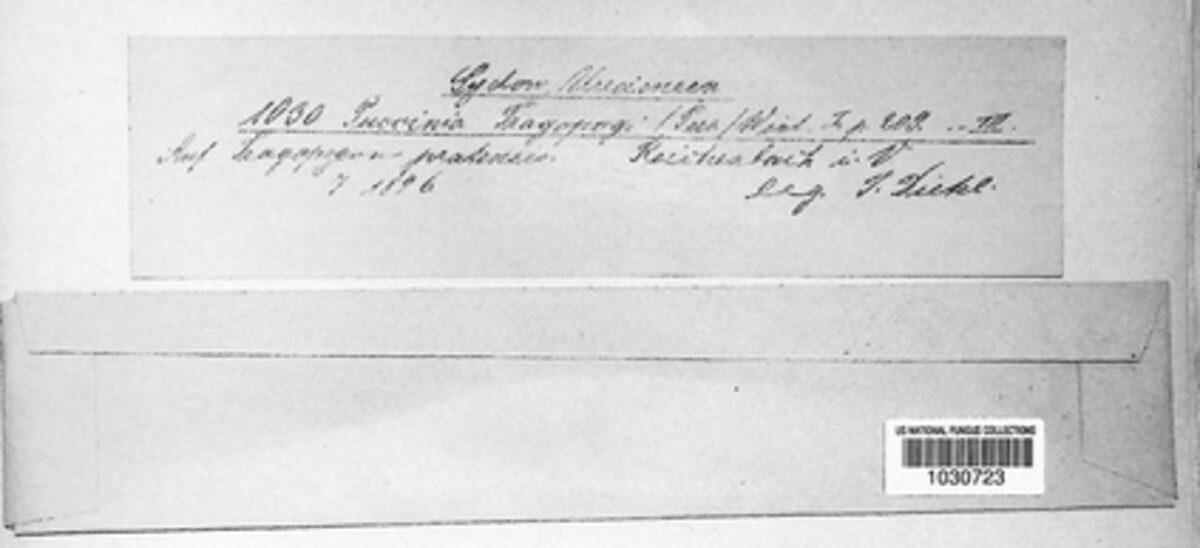 Sydow, Uredineen
1030 Puccinia Tragopogi (Pers) Wint. I. p. 209. -- III.
Auf Tragopogon pratensis. Reichenbach i. V
7 1896 leg. S. Diehl.
US NATIONAL FUNGUS COLLECTIONS
1030723